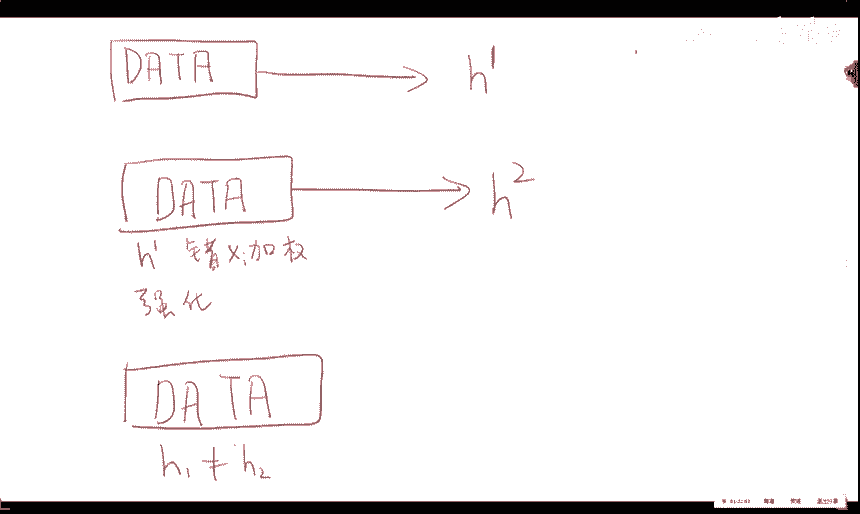 DATA h¹
DATA h²
h¹ 错 xᵢ 加权
强化
DATA
h₁ ≠ h₂